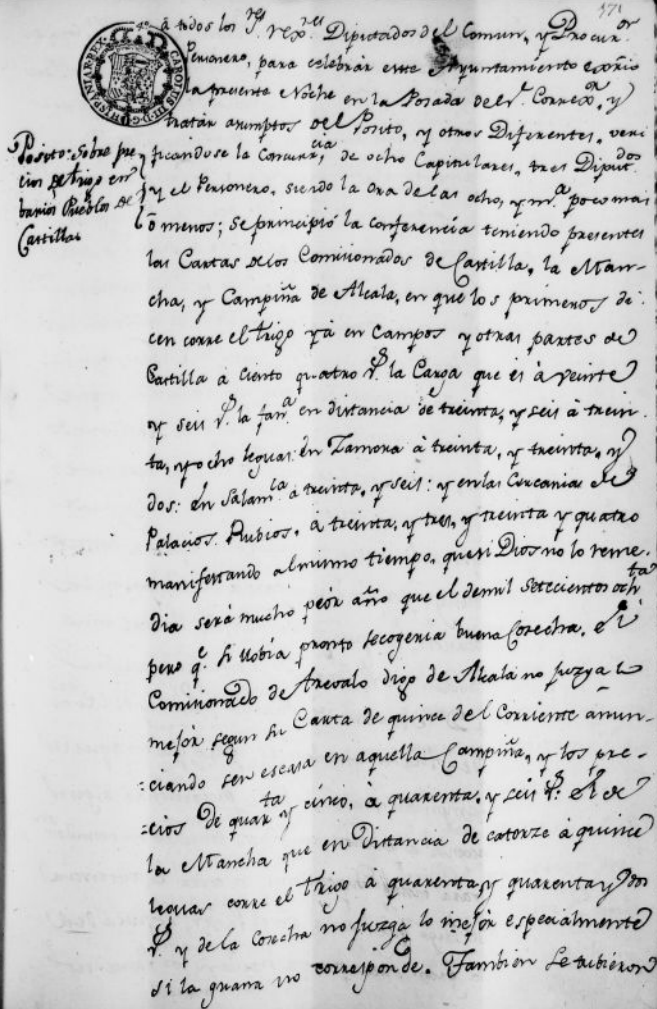 171
CAROLUS III D G HISPANIAR REX
â todos los S.res rex.res Diputados del Comun, y Procur.or
Personero, para celebrar este Ayuntamiento extrio
la presente Noche en la Posada del S.r Correx.or, y
tratàr asumptos del Posito, y otros Diferentes, veri
ficandose la Concurr.cia de ocho Capitulares, tres Diput.dos
y el Personero, siendo la ora de las ocho, y m.a poco mas
ò menos; se principiò la conferencia teniendo presentes
las Cartas de los Comisionados de Castilla, la Man-
cha, y Campiña de Alcala, en que los primeros di-
cen corre el trigo yà en Campos y otras partes de
Castilla à ciento quatro r.s la Carga que es à veinte
y seis r.s la fan.a en distancia de treinta, y seis à trein
ta, y ocho leguas: en Zamora à treinta, y treinta, y
dos: en Salam.ca à treinta, y seis: y en las Cercanias de
Palacios Rubios, à treinta, y tres, y treinta y quatro
manifestando al mismo tiempo, que si Dios no lo reme-
dia serà mucho peòr año que el de mil setecientos och.ta
pero q.e si llobía pronto se cogeria buena Cosecha. El
Comisionado de Arevalo digo de Alcalà no juzga lo
mejòr segun su Carta de quince del Corriente anun-
ciando ser escasa en aquella Campiña, y los pre-
cios de quar.ta y cinco, à quarenta, y seis r.s El de
la Mancha que en Distancia de catorze à quince
leguas corre el trigo à quarenta, y quarenta y dos
r.s y de la Cosecha no juzga lo mejòr especialmente
si la grana no corresponde. Tambien se tubieron
Posito: Sobre pre
cios de trigo en
barios Pueblos de
Castilla